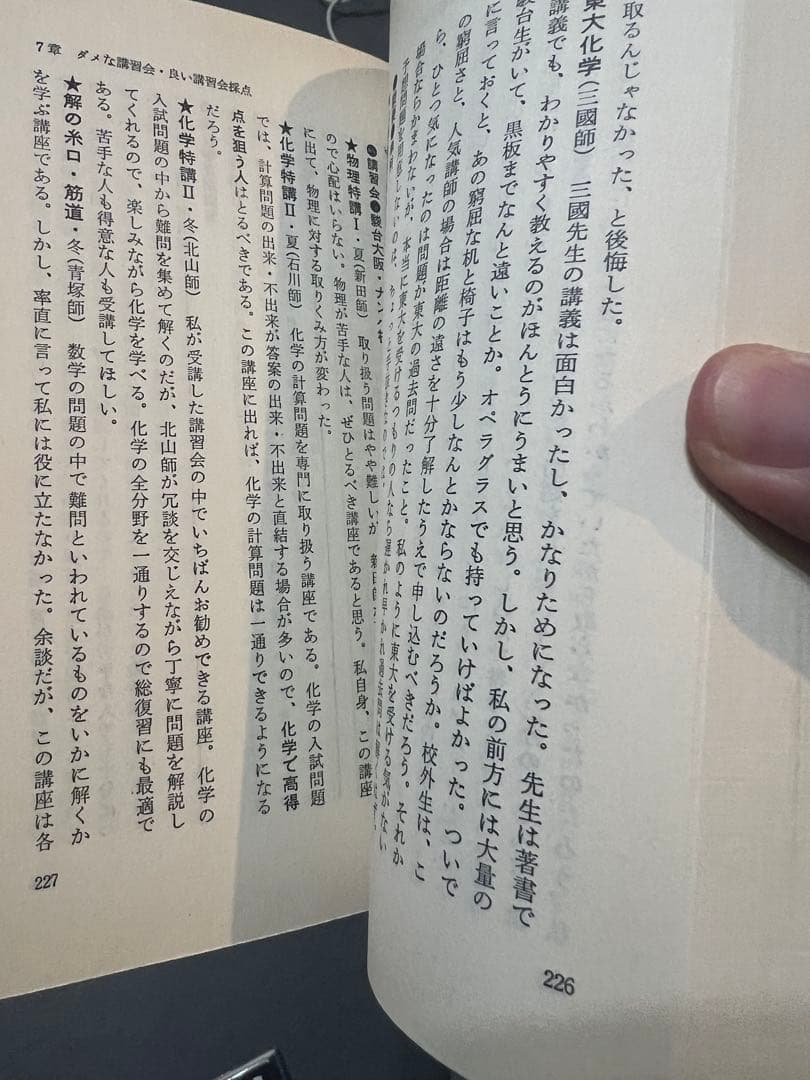 取るんじゃなかった、と後悔した。
東大化学(三國師) 三國先生の講義は面白かったし、かなりためになった。先生は著書で
講義でも、わかりやすく教えるのがほんとうにうまいと思う。しかし、私の前方には大量の
駿台生がいて、黒板までなんと遠いことか。オペラグラスでも持っていけばよかった。ついで
に言っておくと、あの窮屈な机と椅子はもう少しなんとかならないのだろうか。校外生は、こ
の窮屈さと、人気講師の場合は距離の遠さを十分了解したうえで申し込むべきだろう。それか
ら、ひとつ気になったのは問題が東大の過去問だったこと。私のように東大を受ける気がない
場合ならかまわないが、本当に東大を受けるつもりの人なら遅かれ早かれ過去問は
226
7章 ダメな講習会・良い講習会採点
講習会●駿台大阪・
★物理特講Ⅰ・夏(新田師) 取り扱う問題はやや難しいが
ので心配はいらない。物理が苦手な人は、ぜひとるべき講座であると思う。私自身、この講座
に出て、物理に対する取りくみ方が変わった。
★化学特講Ⅱ・夏(石川師) 化学の計算問題を専門に取り扱う講座である。化学の入試問題
では、計算問題の出来・不出来が答案の出来・不出来と直結する場合が多いので、化学で高得
点を狙う人はとるべきである。この講座に出れば、化学の計算問題は一通りできるようになる
だろう。
★化学特講Ⅱ・冬(北山師) 私が受講した講習会の中でいちばんお勧めできる講座。化学の
入試問題の中から難問を集めて解くのだが、北山師が冗談を交じえながら丁寧に問題を解説し
てくれるので、楽しみながら化学を学べる。化学の全分野を一通りするので総復習にも最適で
ある。苦手な人も得意な人も受講してほしい。
★解の糸口・筋道・冬(青塚師) 数学の問題の中で難問といわれているものをいかに解くか
を学ぶ講座である。しかし、率直に言って私には役に立たなかった。余談だが、この講座は各
227